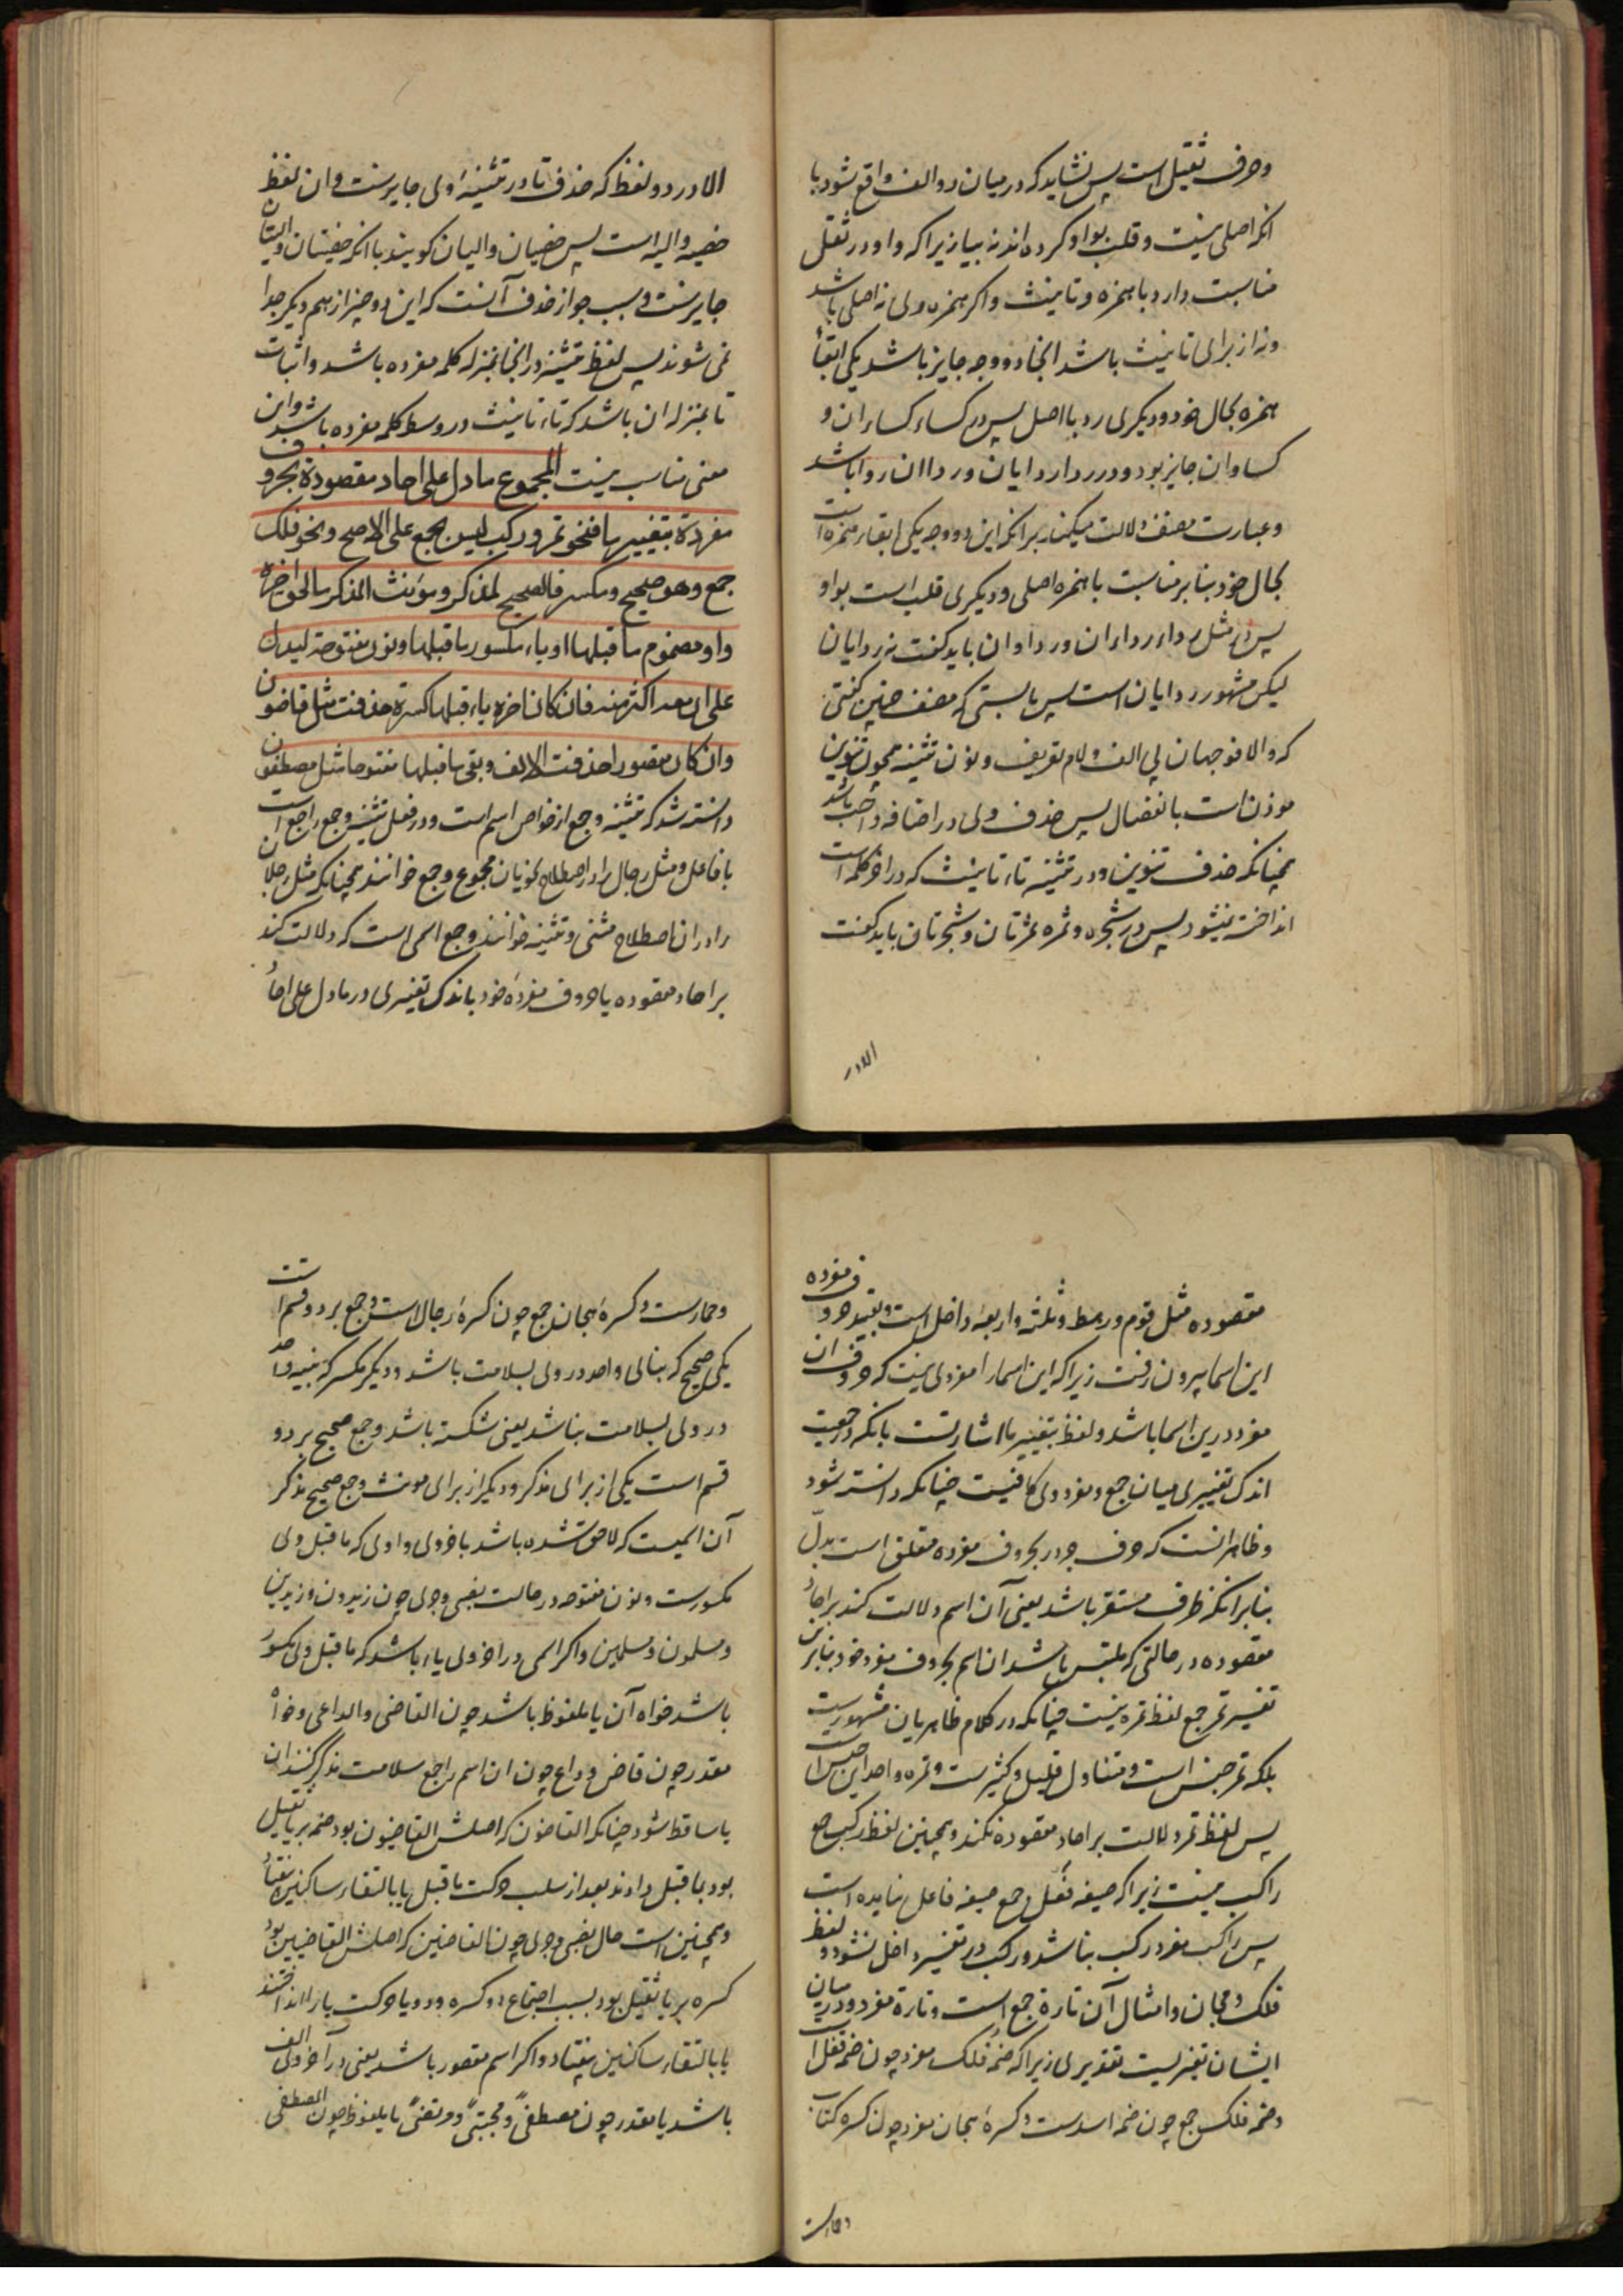 وحرف ثقیل است پس نشاید که در میان دو الف واقع شود با
انکه اصلی نیست و قلب بواو کرده اند نه بیا زیرا که واو در ثقل
مناسبت دارد با همزه و تانیث و اکر همزه ولی نه اصلی باشد
ونه از برای تانیث باشد انجا دو وجه جایز باشد یکی ابقاء
همزه بحال خود ودیکری رد با اصل پس در کساء کساءان و
کساوان جایز بود و در رداء ردایان ورداان روا باشد
وعبارت مصنف دلالت میکند بر انکه این دو وجه یکی ابقاء همزه است
بحال خود بنا بر مناسبت با همزه اصلی ودیکری قلب است بواو
پس در مثل رداء رداءان ورداوان باید کفت نه ردایان
لیکن مشهور ردایان است پس بایستی که مصنف چنین کفتی
که والا فوجهان بی الف ولام تعریف ونون تثنیه همچون تنوین
موذن است بانفصال پس حذف ولی در اضافه واجب باشد
همچنانکه حذف تنوین ودر تثنیه تاء تانیث که در اخر کلمه است
انداخته نمیشود پس در شجره وثمره ثمرتان وشجرتان باید کفت
الادر
الا در دو لفظ که حذف تا در تثنیهٔ ولی جایزست وان لفظ
خصیه والیه است پس خصیان والیان کویند با انکه خصیتان والیتان
جایزست وسبب جواز حذف آنست که این دو چیز از هم دیکر جدا
نمی شوند پس لفظ تثنیه در انجا بمنزله کلمه مفرده باشد واثبات
تا بمنزله ان باشد که تاء تانیث در وسط کلمه مفرده باشد واین
معنی مناسب نیست المجموع ما دل علی احاد مقصودة بحروف
مفردة بتغییر ما فنحو تمر ورکب لیس بجمع علی الاصح ونحو فلک
جمع وهو صحیح ومکسر فالصحیح لمذکر ومؤنث المذکر ما لحق اخره
واو مضموم ما قبلها او یاء مکسور ما قبلها ونون مفتوحة لیدل
علی ان معه اکثر منه فان کان اخره یاء قبلها کسرة حذفت مثل قاضون
وان کان مقصورا حذفت الالف وبقی ما قبلها مفتوحا مثل مصطفون
دانسته شد که تثنیه وجمع از خواص اسم است ودر فعل تثنیه وجمع راجع است
با فاعل ومثل رجال را در اصطلاح نحویان مجموع وجمع خوانند همچنانکه مثل رجلان
را در ان اصطلاح مثنی وتثنیه خوانند وجمع اسمی است که دلالت کند
بر احاد مقصوده با حروف مفردهٔ خود باندک تغییری ودر ما دل علی احاد
مقصوده مثل قوم ورهط وثلثه واربعه داخل است وبقید حروف مفرده
این اسما بیرون رفت زیرا که این اسما را مفردی نیست که حروف ان
مفرد درین اسما باشد ولفظ بتغییر ما اشارتست بانکه در جمعیت
اندک تغییری میان جمع ومفرد ولی کافیست چنانکه دانسته شود
وظاهر انست که حرف جر در بحروف مفرده متعلق است بدل
بنا بر انکه ظرف مستقر باشد یعنی آن اسم دلالت کند بر احاد
مقصوده در حالتی که ملتبس باشد ان اسم بحروف مفرد خود بنا بر این
تفسیر تمر جمع لفظ تمره نیست چنانکه در کلام ظاهریان مشهورست
بلکه تمر جنس است ومتناول قلیل وکثیرست وتمره واحد این جنس است
پس لفظ تمر دلالت بر احاد مقصوده نکند وهمچنین لفظ رکب جمع
راکب نیست زیرا که صیغه فعل جمع صیغه فاعل نیامده است
پس راکب مفرد رکب نباشد ورکب در تفسیر داخل نشود ولفظ
فلک وهجان وامثال آن تارة جمع است وتارة مفرد ودر میان
ایشان تغییریست تقدیری زیرا که ضمه فلک مفرد چون ضمه قفل است
وضمه فلک جمع چون ضمه اسدست وکسرهٔ هجان مفرد چون کسره کتاب
وحمارست
وحمارست وکسرهٔ هجان جمع چون کسرهٔ رجالست وجمع بر دو قسم است
یکی صحیح که بنای واحد در ولی بسلامت باشد ودیکر مکسر که بنیه واحد
در ولی بسلامت نباشد یعنی شکسته باشد وجمع صحیح بر دو
قسم است یکی از برای مذکر ودیکر از برای مونث وجمع صحیح مذکر
آن اسمیست که لاحق شده باشد باخر ولی واوی که ما قبل ولی
مکسورست ونون مفتوحه در حالت نصبی وجری چون زیدون وزیدین
ومسلمون ومسلمین واکر اسمی در اخر ولی یاء باشد که ما قبل ولی مکسور
باشد خواه آن یا ملفوظ باشد چون القاضی والداعی وخواه
مقدر چون قاض وداع چون ان اسم را جمع سلامت مذکر کنند ان
یا ساقط شود چنانکه القاضون که اصلش القاضیون بود ضمه بر یا ثقیل
بود بما قبل دادند بعد از سلب حرکت ما قبل یا بالتقاء ساکنین بیفتاد
وهمچنین است حال نصبی وجری چون القاضین که اصلش القاضیین بود
کسره بر یا ثقیل بود بسبب اجتماع دو کسره ودو یا حرکت یا را انداختند
یا بالتقاء ساکنین بیفتاد واکر اسم مقصور باشد یعنی در آخر ولی الف
باشد یا مقدر چون مصطفیً ومجتبیً ومرتضیً یا ملفوظ چون المصطفی